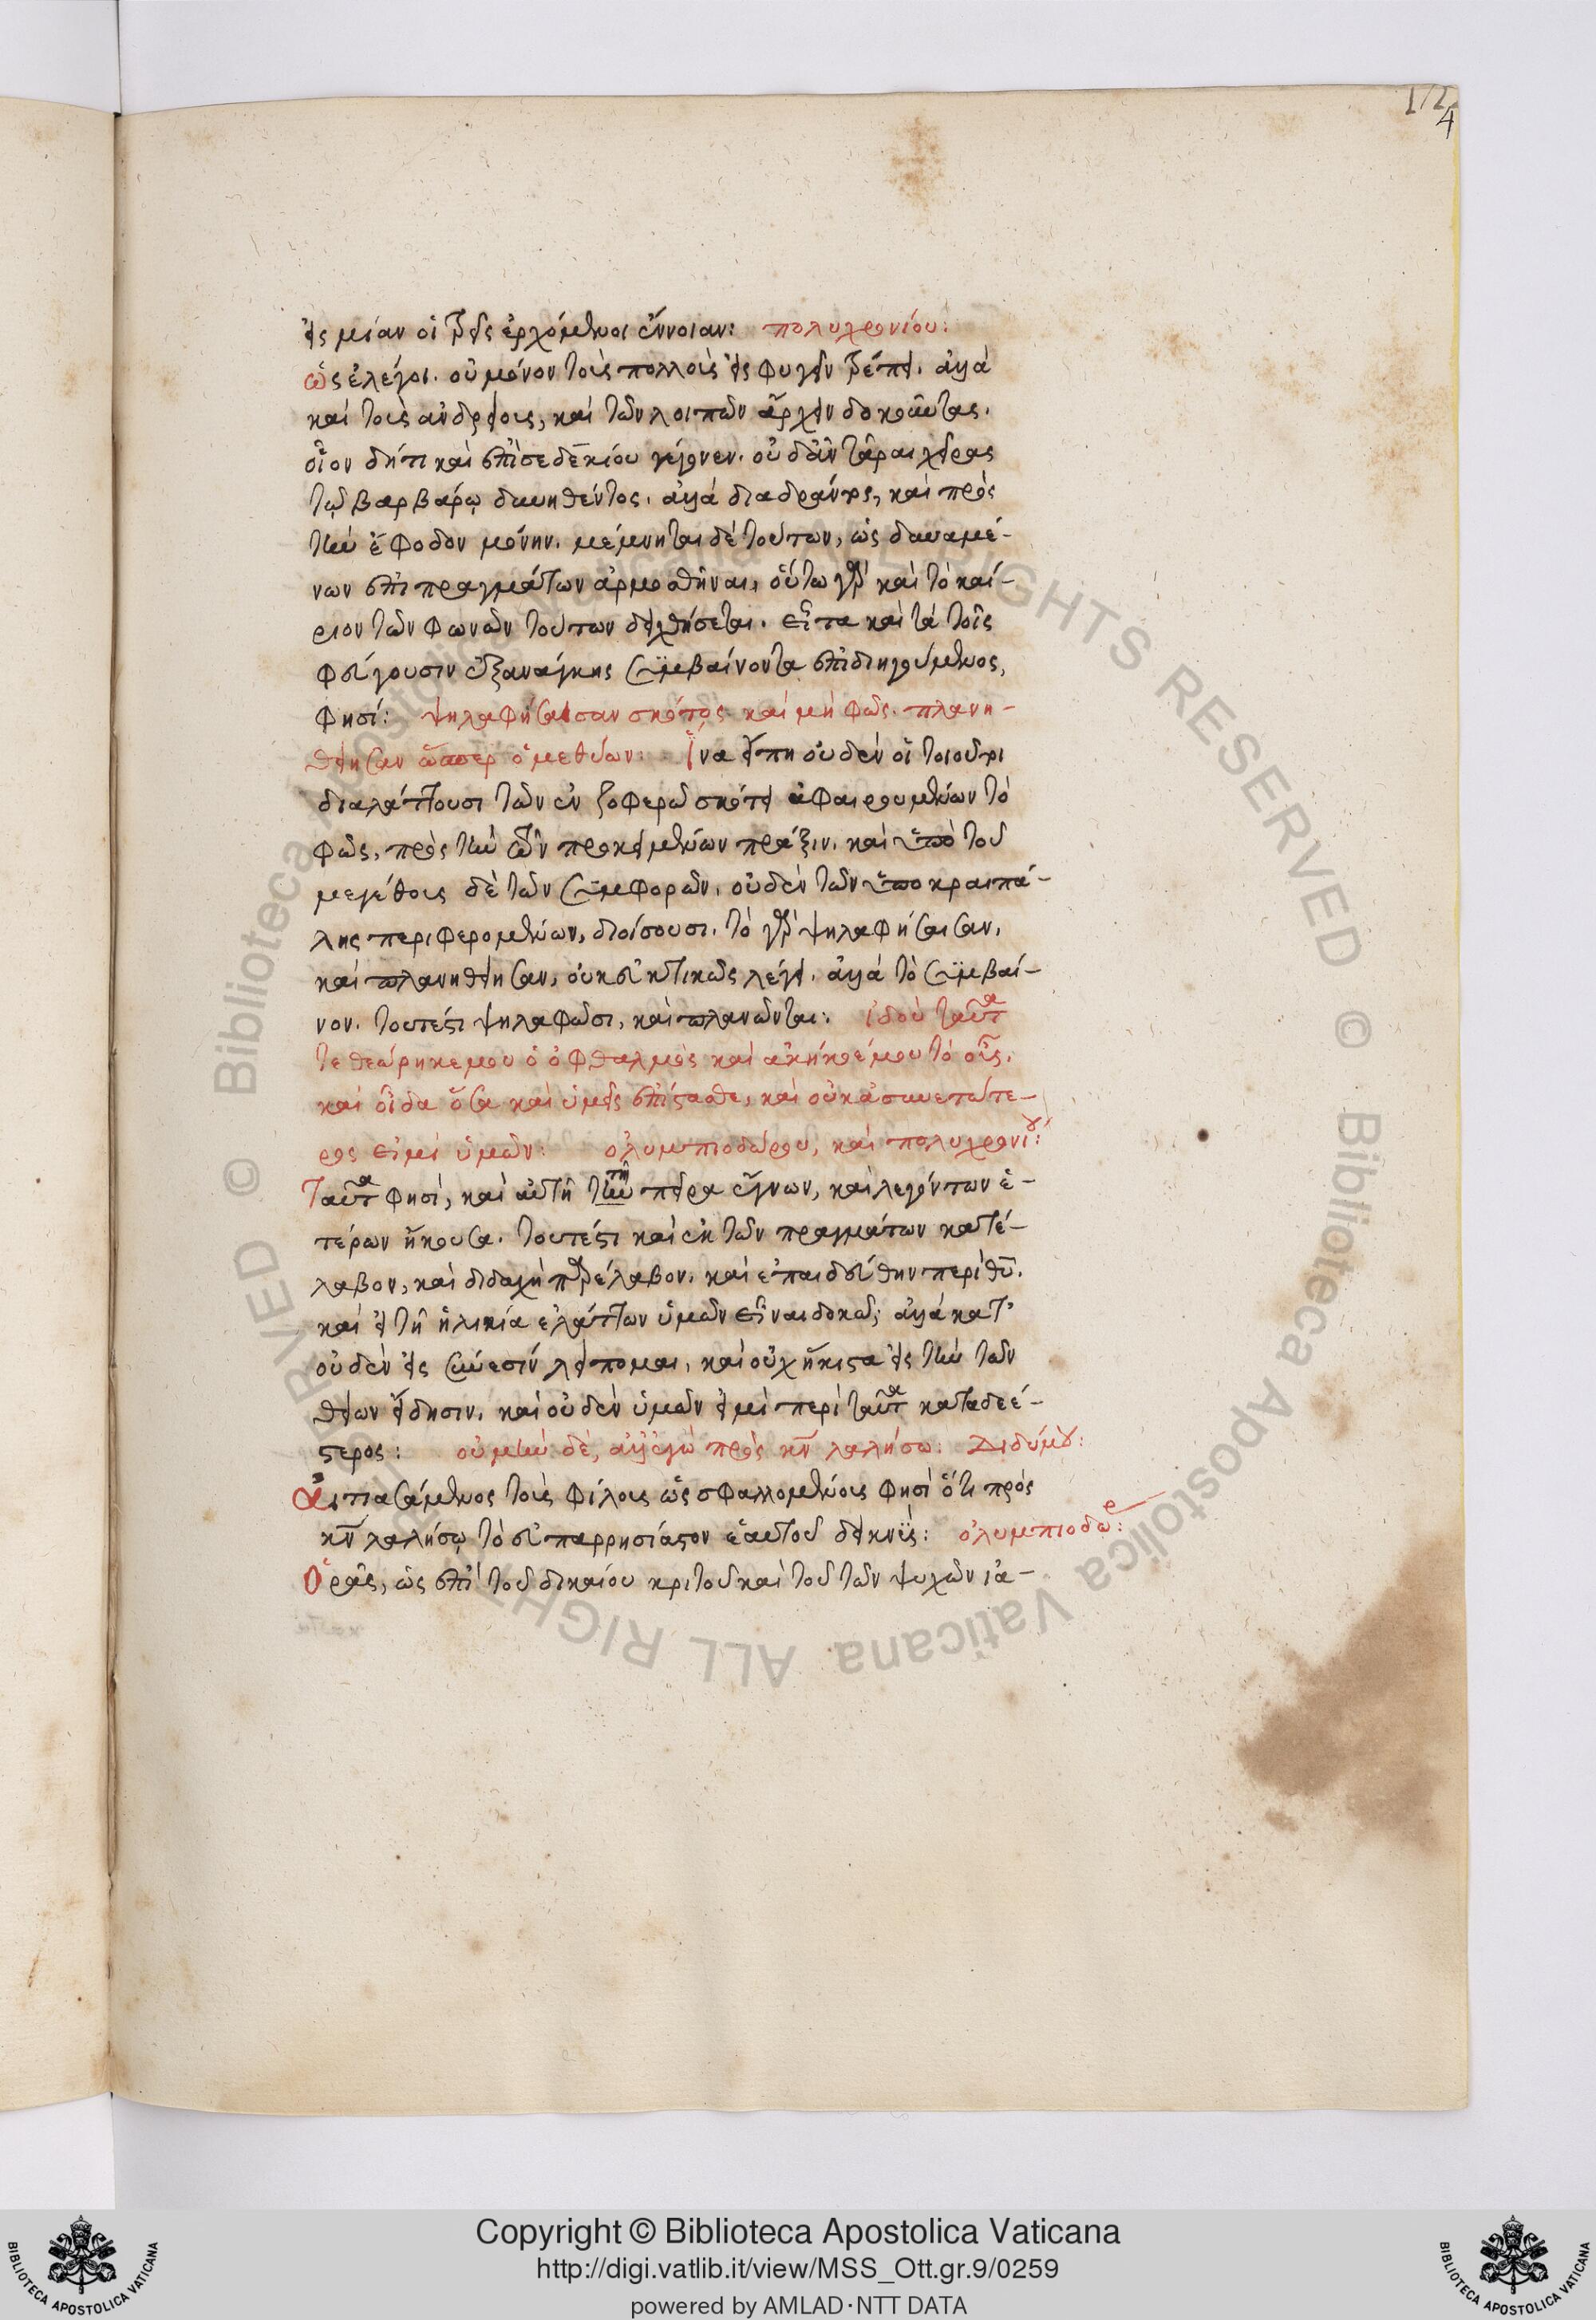 124
εἰς μίαν οἱ τρεῖς ἐρχόμενοι ἔννοιαν: πολυχρονίου:
ὡς ἐλέγοι. οὐ μόνον τοὺς πολλοὺς εἰς φυγὴν τρέπει. ἀλλὰ
καὶ τοὺς ἀνδρείους, καὶ τῶν λοιπῶν ἄρχειν δοκοῦντας.
οἷον δήτι καὶ ἐπὶ σεδεκίου γέγονεν. οὐδ' ἀντᾶραι χεῖρας
τῷ βαρβάρῳ δυνηθέντος. ἀλλὰ διαδράντος, καὶ πρὸς
τὴν ἔφοδον μόνην. μέμνηται δὲ τούτων, ὡς δυναμέ-
νων ἐπὶ πραγμάτων ἁρμοσθῆναι, οὕτω γὰρ καὶ τὸ καί-
ριον τῶν φωνῶν τούτων δειχθήσεται. εἶτα καὶ τὰ τοῖς
φεύγουσιν ἐξανάγκης συμβαίνοντα ἐπιδιηγούμενος,
φησί: ψηλαφήσαισαν σκότος καὶ μὴ φῶς. πλανη-
θείησαν ὥσπερ ὁ μεθύων: ἵνα εἴπῃ οὐδὲν οἱ τοιοῦτοι
διαλάττουσι τῶν ἐν ζοφερῷ σκότει ἀφαιρουμένων τὸ
φῶς, πρὸς τὴν τῶν προκειμένων πράξιν. καὶ ὑπὸ τοῦ
μεγέθους δὲ τῶν συμφορῶν, οὐδὲν τῶν ὑπο κραιπά-
λης περιφερομένων, διοίσουσι. τὸ γὰρ ψηλαφήσαισαν,
καὶ πλανηθείησαν, οὐκ εὐκτικῶς λέγει. ἀλλὰ τὸ συμβαί-
νον. τουτέστι ψηλαφῶσι, καὶ πλανῶνται: ἰδοὺ ταῦτα
τεθεώρηκε μου ὁ ὀφθαλμὸς καὶ ἀκήκοέ μου τὸ οὖς.
καὶ οἶδα ὅσα καὶ ὑμεῖς ἐπίστασθε, καὶ οὐκ ἀσυνετώτε-
ρος εἰμι ὑμῶν: ὀλυμπιοδώρου, καὶ πολυχρονίου:
Ταῦτα φησί, καὶ αὐτῇ τὴν τῇ πείρα ἔγνων, καὶ λεγόντων ἑ-
τέρων ἤκουσα. τουτέστι καὶ ἐκ τῶν πραγμάτων κατέ-
λαβον, καὶ διδαχὴ παρέλαβον. καὶ ἐπαιδεύθην περὶ θυ.
καὶ εἰ τῇ ἡλικία ἐλάττων ὑμῶν εἶναι δοκῶ; ἀλλὰ κατ'
οὐδὲν εἰς σύνεσίν λείπομαι, καὶ οὐχ ἥκιστα εἰς τὴν τῶν
θείων εἴδησιν. καὶ οὐδὲν ὑμῶν εἰμὶ περὶ ταῦτα καταδεέ-
στερος: οὐ μὴν δὲ, ἀλλ' ἐγὼ πρὸς κν λαλήσω: Διδύμου:
Αἰτιασάμενος τοὺς φίλους ὡς σφαλλομένους φησὶ ὅτι πρὸς
κν λαλήσῳ τὸ εὐπαρρησίαστον ἑαυτοῦ δεικνύς: ὀλυμπιοδώρ:
Ὁρᾷς, ὡς ἐπὶ τοῦ δικαίου κριτοῦ καὶ τοῦ τῶν ψυχῶν ἰα-
Copyright © Biblioteca Apostolica Vaticana
http://digi.vatlib.it/view/MSS_Ott.gr.9/0259
powered by AMLAD·NTT DATA